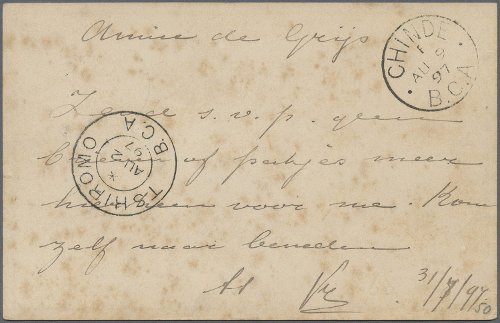 Annie de Grijs
CHINDE
AU 9
97
B.C.A
Zend s.v.p. geen
brieven of pakjes meer
hierheen voor me. Kom
zelf naar beneden
TSHIROMO
AU 2
97
B.C.A
31/7/97
50